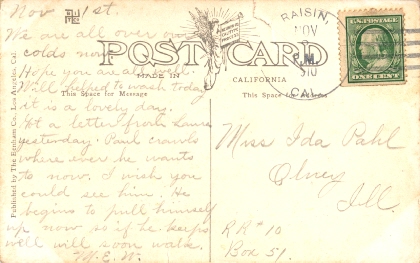 Nov 1st.
We are all over our
colds now.
Hope you are all well.
Will helped to wash today
it is a lovely day.
Got a letter from Laura
yesterday. Paul crawls
where ever he wants
to now. I wish you
could see him. He
begins to pull himself
up now so if he keeps
well will soon walk.
M. E. W.
POST CARD
MADE IN
CALIFORNIA
This Space for Message
This Space for Address
Published by The Benham Co., Los Angeles, Cal.
RAISIN,
NOV
M
CAL.
U.S. POSTAGE
ONE CENT
Miss Ida Pahl
Olney
Ill.
RR # 10
Box 51.